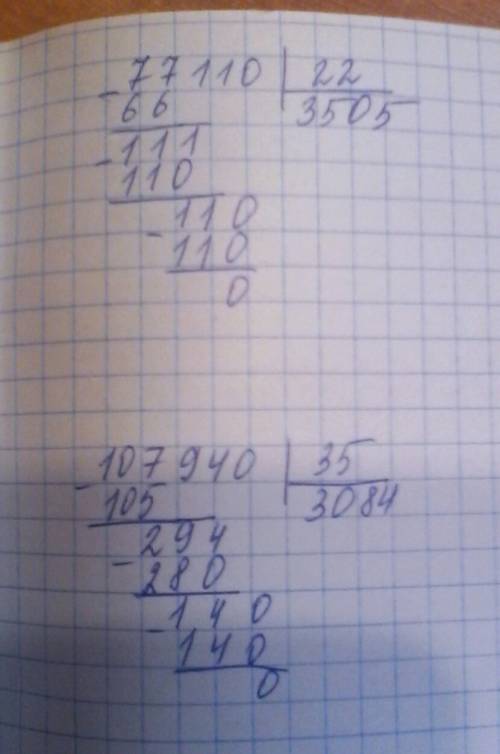 - 77110 | 22
66 3505
- 111
110
- 110
110
0
- 107940 | 35
105 3084
- 294
280
- 140
140
0